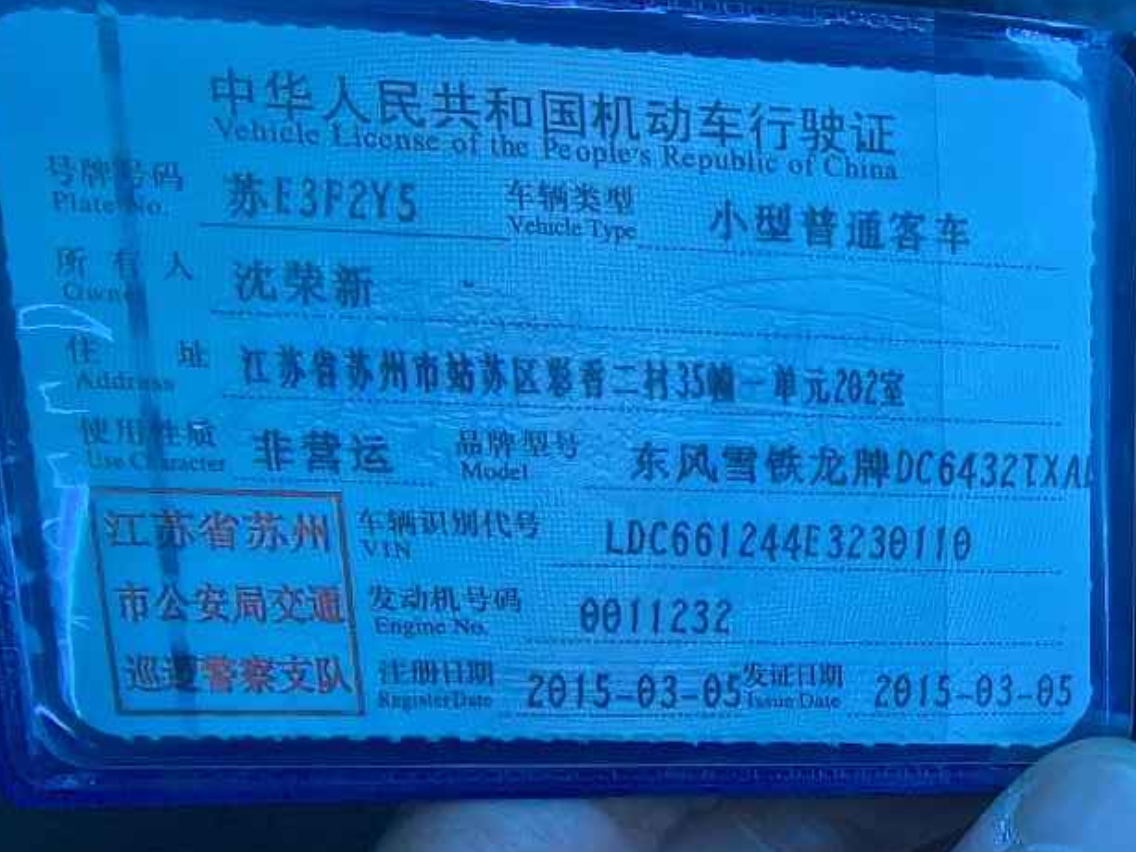 中华人民共和国机动车行驶证
Vehicle License of the People's Republic of China
号牌号码 苏E3F2Y5 车辆类型 小型普通客车
Plate No. Vehicle Type
所有人 沈荣新
Owner
住址 江苏省苏州市姑苏区彩香二村35幢一单元202室
Address
使用性质 非营运 品牌型号 东风雪铁龙牌DC6432TXAL
Use Character Model
江苏省苏州 车辆识别代号 LDC661244E3230110
VIN
市公安局交通 发动机号码 0011232
Engine No.
巡逻警察支队 注册日期 2015-03-05 发证日期 2015-03-05
Register Date Issue Date